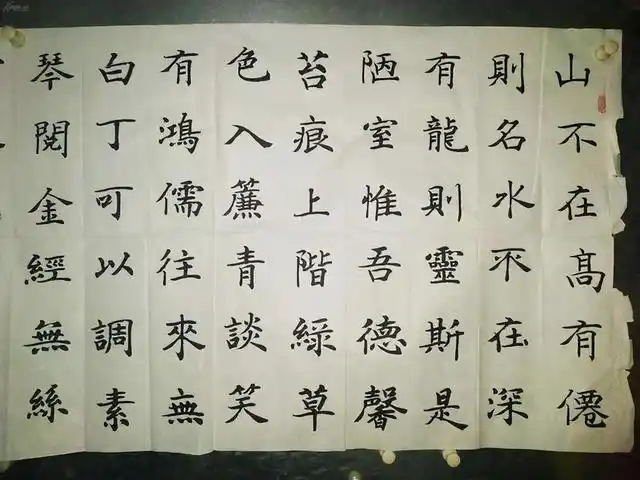 山不在髙有僊
則名水不在深
有龍則靈斯是
陋室惟吾德馨
苔痕上階綠草
色入簾青談笑
有鴻儒往來無
白丁可以調素
琴閱金經無絲